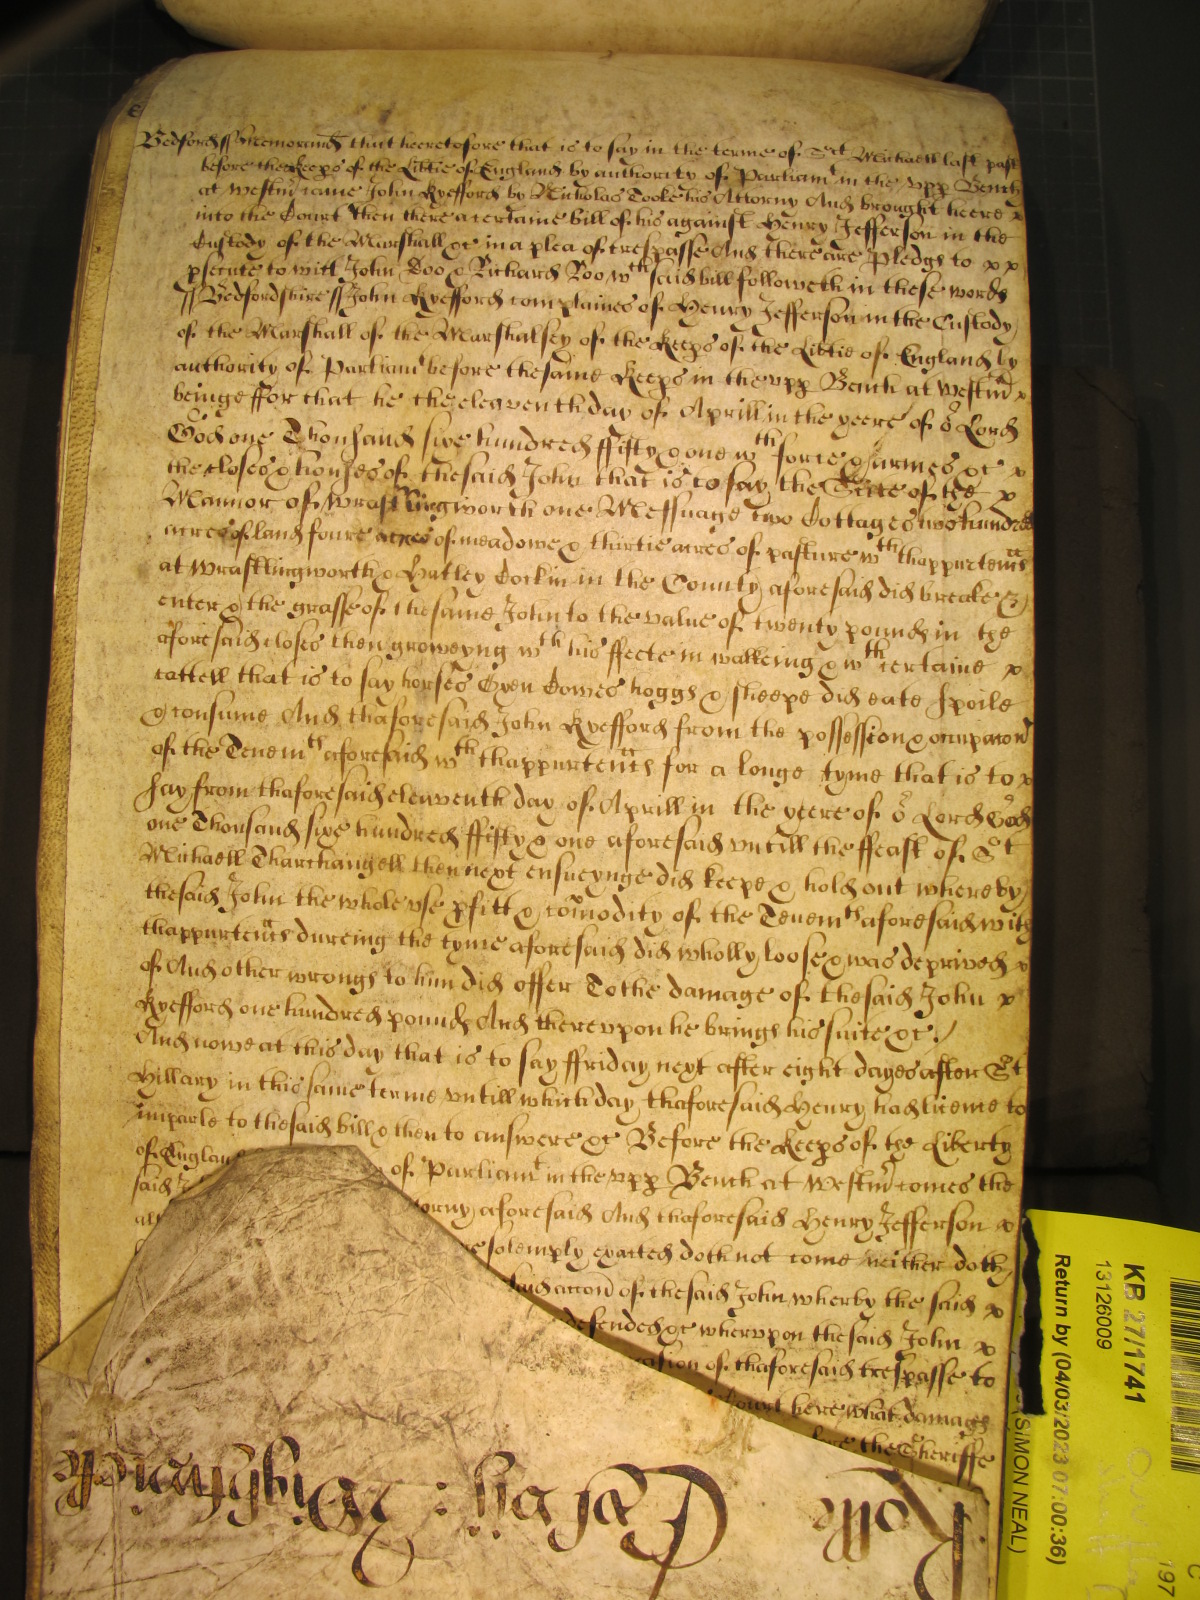 Bedford ss Memorand that heretofore that is to say in the terme of St Michaell last past
before the keeps of the Libtie of England by authority of Parliamt in the vpp Bench
at Westmr came John Ryefford by Nicholas Tooke his Attorny And brought heere x
into the Court then there a certaine bill of his against Henry Jefferson in the
Custody of the Marshall &c in a plea of trespasse And there are Pledgs to x x
psecute to witt John Doo & Richard Roo wth said bill followeth in these words
ss Bedfordshire ss John Ryefford complaines of Henry Jefferson in the Custody
of the Marshall of the Marshalsey of the keeps of the Libtie of England by
authority of Parliamt before the same keeps in the vpp Bench at Westmr x
beinge ffor that he the eleaventh day of Aprill in the yeere of or Lord
God one Thousand sixe hundred ffifty & one wth force & armes &c x
the closes & houses of the said John that is to say the Scite of the x
Mannor of Wrastlingworth one Messuage two Cottages two hundred
acres of land foure acres of meadowe & thirtie acres of pasture wth thappurtents
at Wrastlingworth & Hatley Cockin in the County aforesaid did breake &
enter & the grasse of the same John to the value of twenty pound in the
aforesaid closes then groweyng wth his ffeete in walkeing & wth certaine x
cattell that is to say horses Oxen Cowes hoggs & sheepe did eate spoile
& consume And thaforesaid John Ryefford from the possession & occupacon
of the Tenemts aforesaid wth thappurtents for a longe tyme that is to x
say from thaforesaid eleaventh day of Aprill in the yeere of or Lord God
one Thousand sixe hundred ffifty & one aforesaid vntill the ffeast of St
Michaell Tharchangell then next ensueynge did keepe & hold out whereby
the said John the whole vse pfitt & comodity of the Tenemts aforesaid with
thappurtents dureing the tyme aforesaid did wholly loose & was deprived x
of And other wrongs to him did offer To the damage of the said John x
Ryefford one hundred pounds And therevpon he brings his suite &c /
And nowe at this day that is to say ffriday next after eight dayes after St
Hillary in this same terme vntill which day thaforesaid Henry had liceme to
imparle to the said bill & then to answere &c Before the keeps of the Liberty
of Englan of Parliamt in the vpp Bench at Westmr comes the
said J orny aforesaid And thaforesaid Henry Jefferson x
alt solemply exacted doth not come neither doth
said accon of the said John wherby the said x
defended &c whervpon the said John x
casion of thaforesaid trespasse to
Court here what damages
the Sheriffe
Rolle
KB 27/1741
13126009
Return by (04/03/2023 07:00:36)
(SIMON NEAL)
197